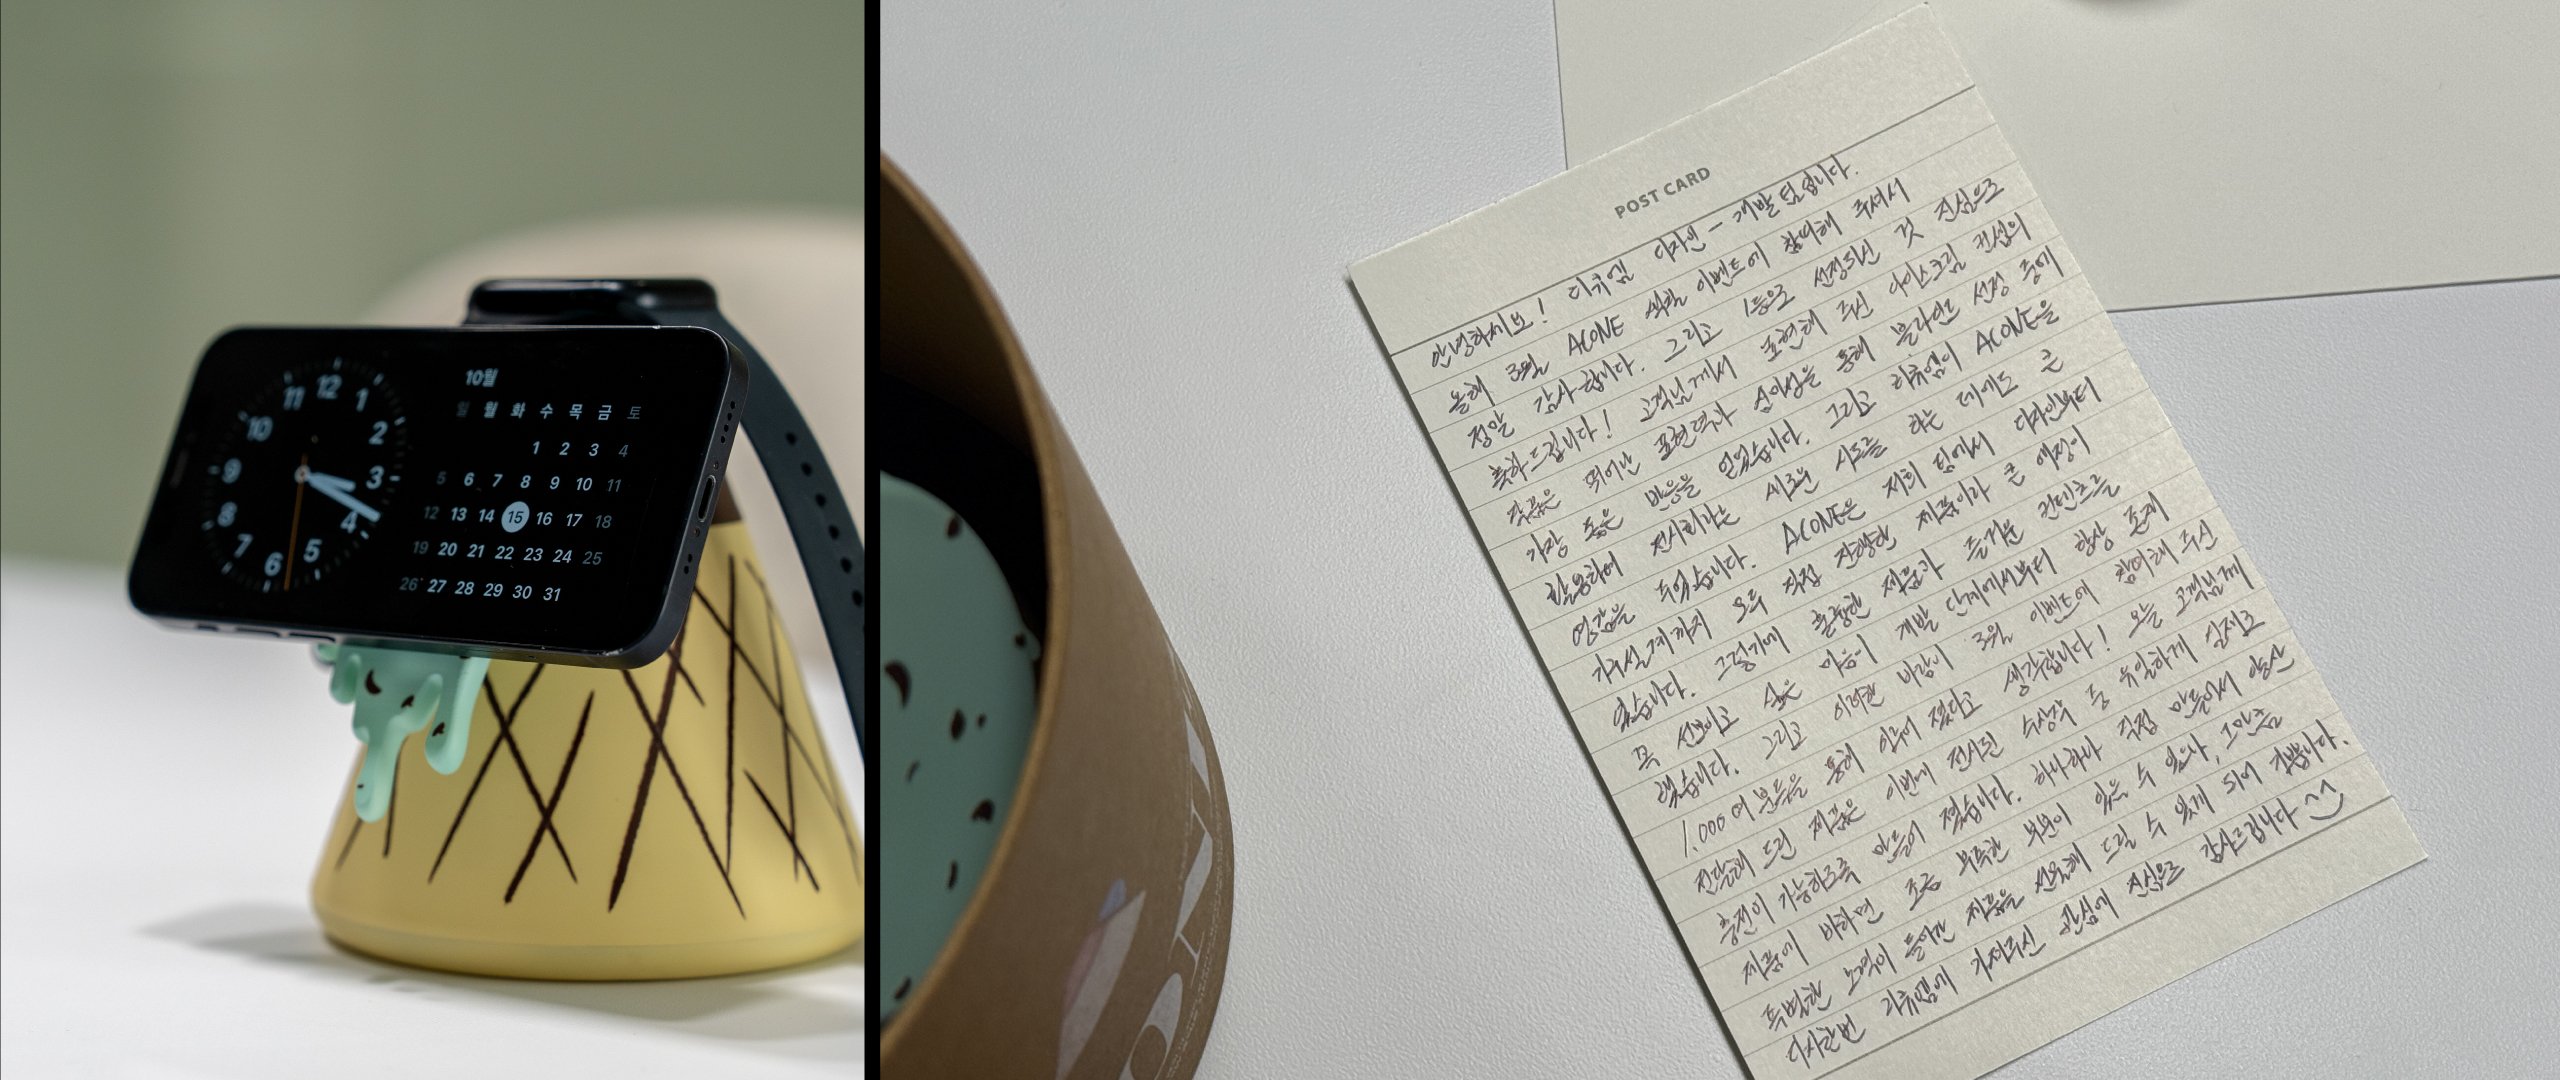 12
1
2
3
4
5
6
7
8
9
10
11
10월
일 월 화 수 목 금 토
1 2 3 4
5 6 7 8 9 10 11
12 13 14 15 16 17 18
19 20 21 22 23 24 25
26 27 28 29 30 31
POST CARD
안녕하세요! 디귀엠 디자인 - 개발팀입니다.
올해 3월 ACONE 색칠 이벤트에 참여해 주셔서
정말 감사합니다. 그리고 1등으로 선정되신 것 진심으로
축하드립니다! 고객님께서 표현해 주신 아이스크림 컨셉의
작품은 뛰어난 표현력과 심미성을 통해 블라인드 선정 중에
가장 좋은 반응을 얻었습니다. 그리고 디귀엠이 ACONE을
활용하여 전시회라는 새로운 시도를 하는 데에도 큰
영감을 주었습니다. ACONE은 저희 팀에서 디자인부터
기구설계까지 모두 직접 진행한 제품이라 큰 애정이
있습니다. 그렇기에 훌륭한 제품과 즐거운 컨텐츠를
꼭 선보이고 싶은 마음이 개발 단계에서부터 항상 존재
했습니다. 그리고 이러한 바람이 3월 이벤트에 참여해 주신
1,000여 분들을 통해 이루어 졌다고 생각합니다! 오늘 고객님께
전달해 드린 제품은 이번에 전시된 수상작 중 유일하게 실제로
충전이 가능하도록 만들어 졌습니다. 하나하나 직접 만들어서 양산
제품에 비하면 조금 부족한 부분이 있을 수 있으나, 그만큼
특별한 노력이 들어간 제품을 선물해 드릴 수 있게 되어 기쁩니다.
다시한번 디귀엠에 가져주신 관심에 진심으로 감사드립니다